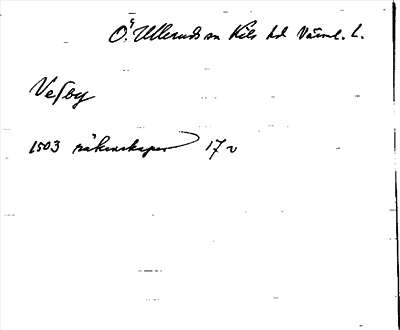 Ö. Ulleruds sn Kils hd Värml. L.
Vesby
1503 räkenskaper 17 v